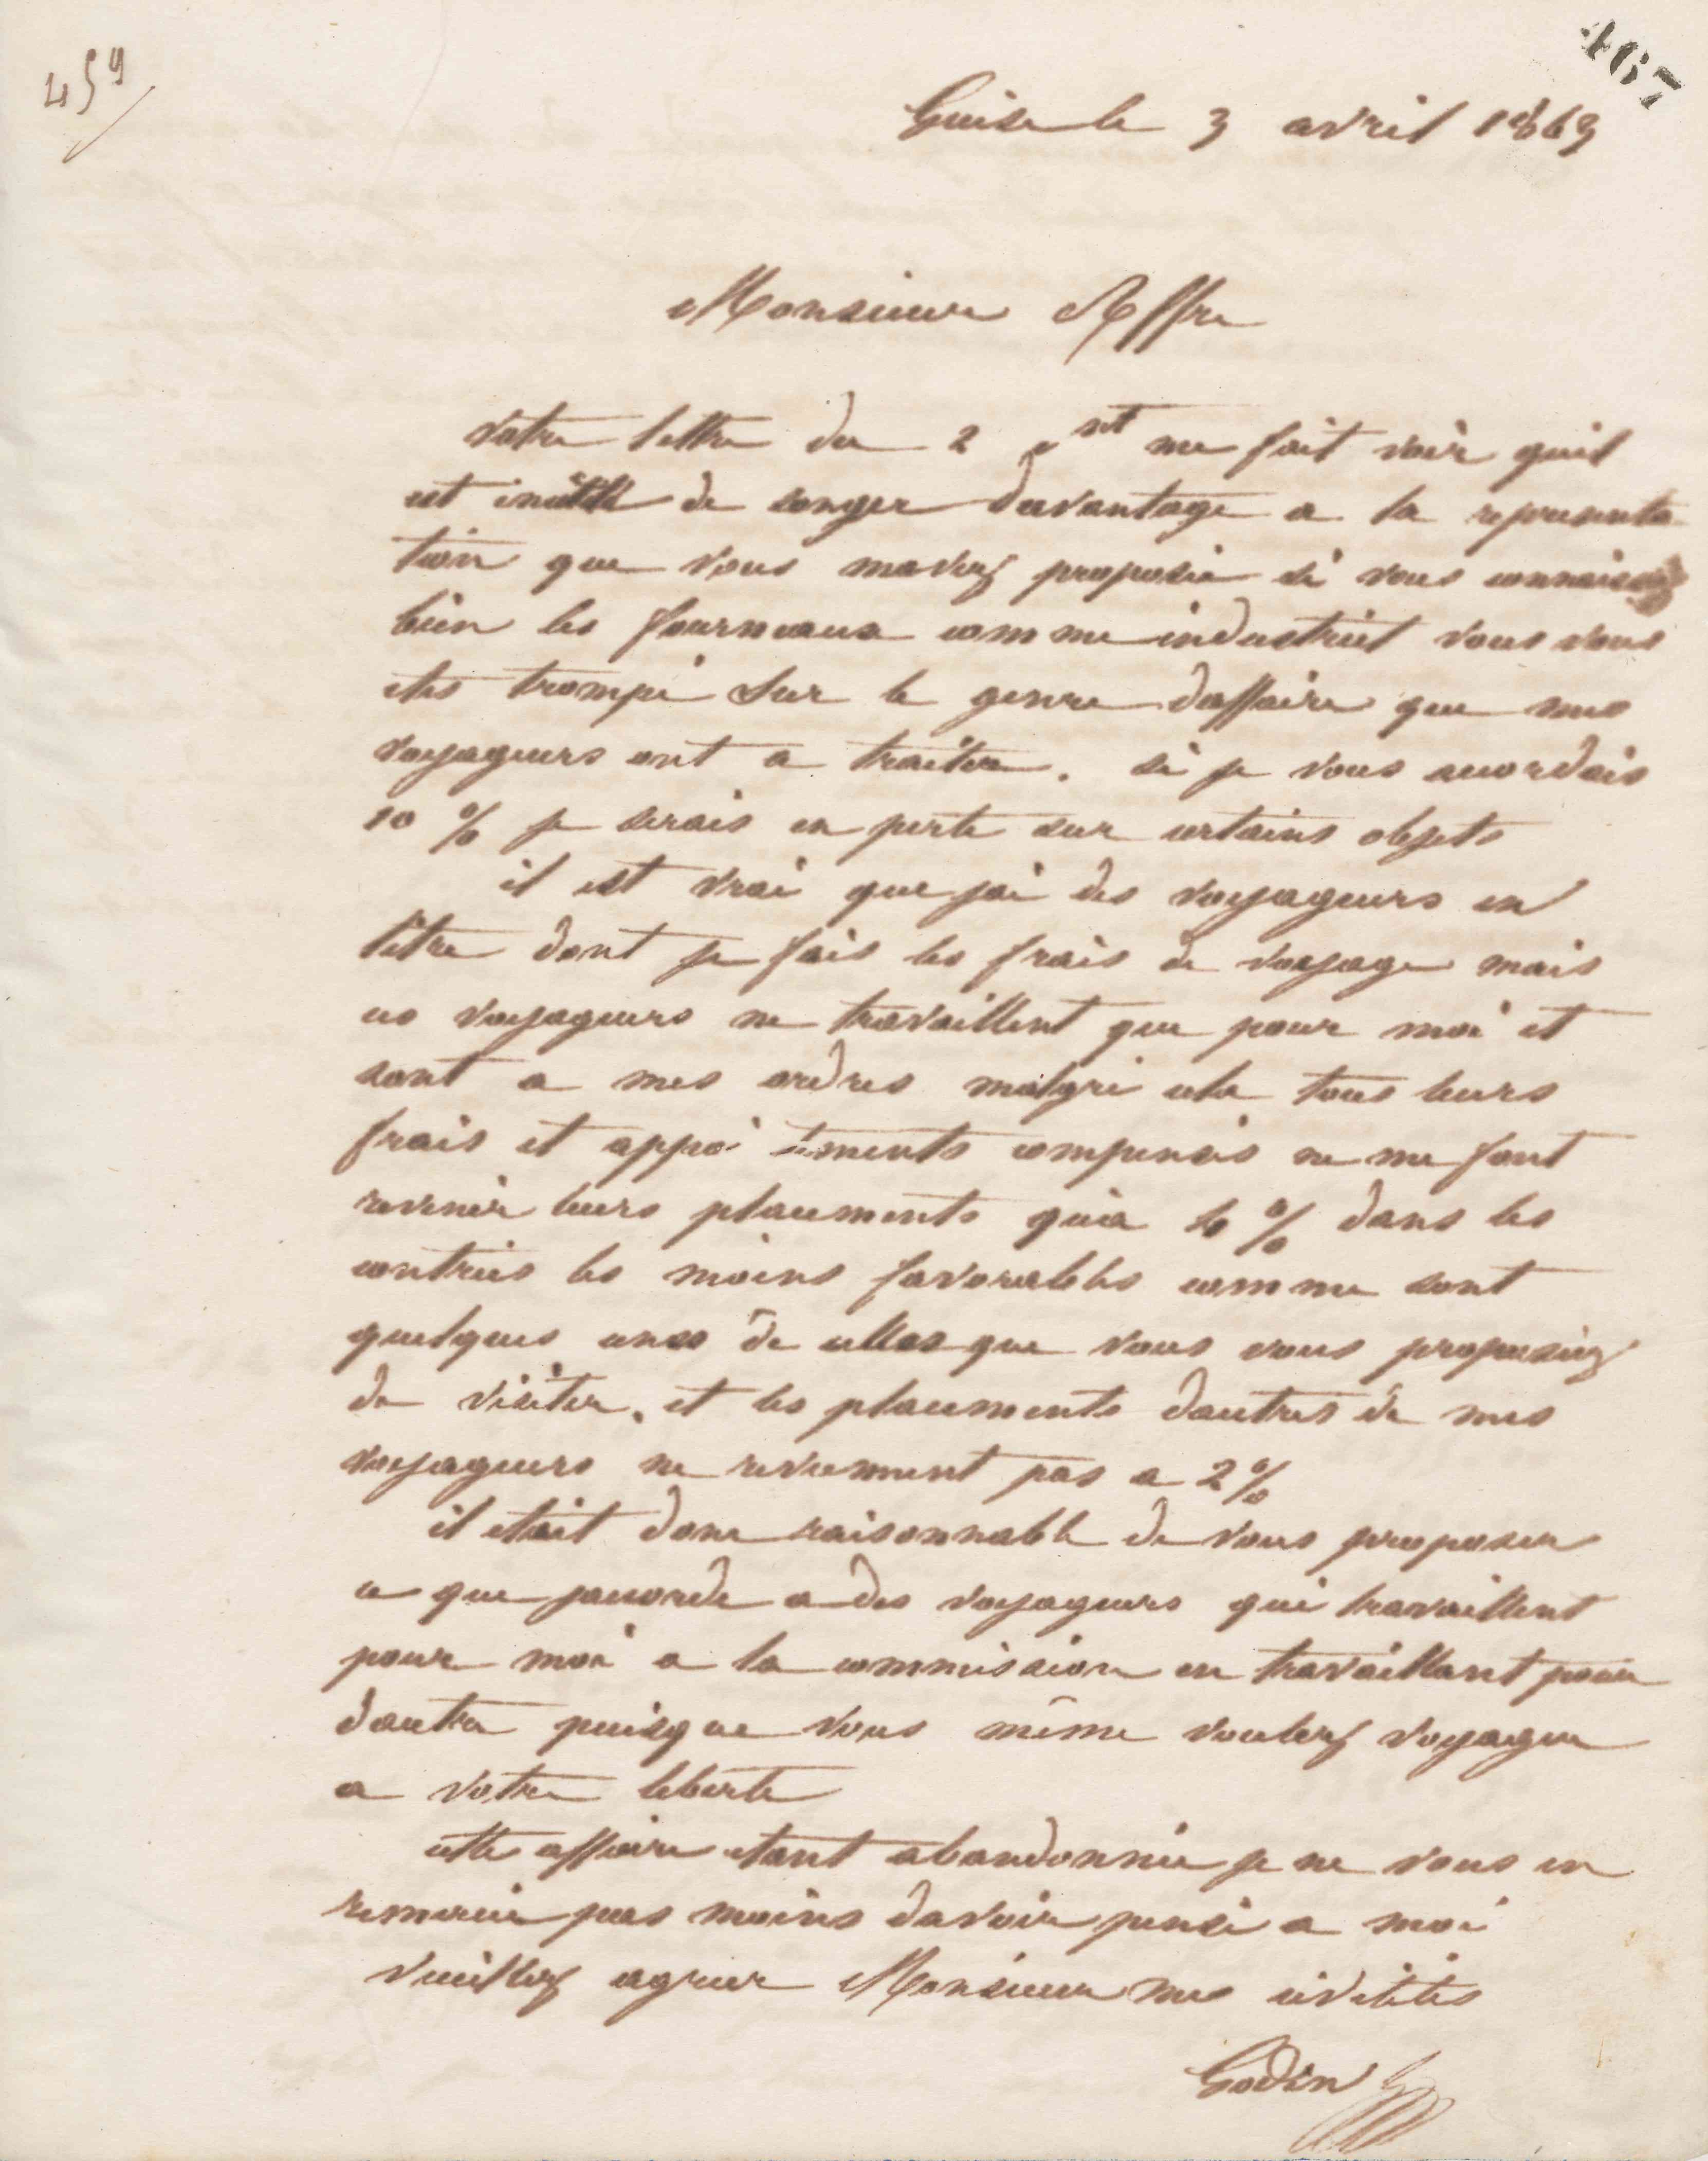 459
467
Guise le 3 avril 1863
Monsieur Affre
votre lettre du 2 ct me fait voir quil
est inutile de songer davantage a la representa
tion que vous mavez proposée si vous connaissez
bien les fourneaux comme industriel vous vous
etes trompé sur le genre daffaire que mes
voyageurs ont a traiter. si je vous accordais
10 % je serais en perte sur certains objets
il est vrai que jai des voyageurs en
titre dont je fais les frais de voyage mais
ces voyageurs ne travaillent que pour moi et
sont a mes ordres malgré cela tous leurs
frais et appointements compensés ne me font
revenir leurs placements qu'a % dans les
contrées les moins favorables comme sont
quelques unes de celles que vous vous proposiez
de visiter. et les placements dautres de mes
voyageurs ne reviennent pas a 2 %
il etait donc raisonnable de vous proposer
ce que jaccorde a des voyageurs qui travaillent
pour moi a la commission en travaillant pour
dautre puisque vous même voulez voyager
a votre liberté
cette affaire etant abandonnée je ne vous en
remercie pas moins davoir pensé a moi
veuillez agreer Monsieur mes civilités
Godin